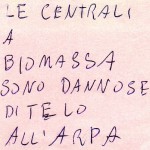 LE CENTRALI
A
BIOMASSA
SONO DANNOSE
DITELO
ALL'ARPA